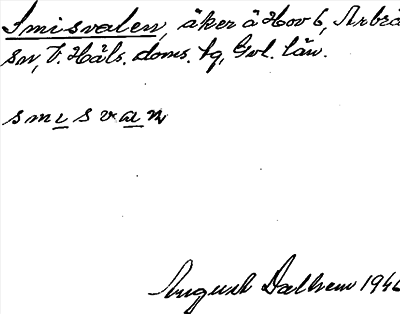 Smisvalen, åker å Hov 6, Arbrå
sn, V. Häls. doms. hg, Gvl. län.
smisvan
August Dalhem 194